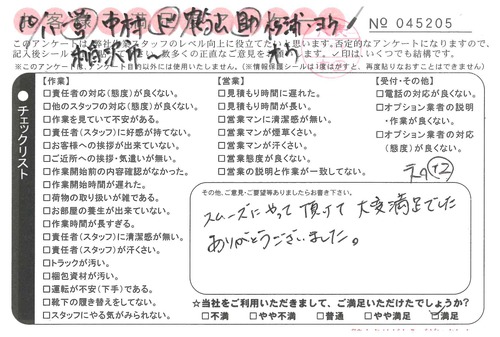 No 045205
このアンケートは弊社作業スタッフのレベル向上に役立てたいと思います。否定的なアンケートになりますので、
記入後シール
数多くの正直なご意見をお待ちしています。✓印は、いくつでも結構です。
※このアンケートは、アンケート目的以外には使用いたしません。(※情報保護シールは1度はがすと、再度貼りなおすことはできません)
チェックリスト
【作業】
□責任者の対応(態度)が良くない。
□他のスタッフの対応(態度)が良くない。
□作業を見ていて不安がある。
□責任者(スタッフ)に好感が持てない。
□お客様への挨拶が出来ていない。
□ご近所への挨拶・気遣いが無い。
□作業開始前の内容確認がなかった。
□作業開始時間が遅れた。
□荷物の取り扱いが雑である。
□お部屋の養生が出来ていない。
□作業時間が長すぎる。
□責任者(スタッフ)に清潔感が無い。
□責任者(スタッフ)が汗くさい。
□トラックが汚い。
□梱包資材が汚い。
□運転が不安(下手)である。
□靴下の履き替えをしてない。
□スタッフにやる気がみられない。
【営業】
□見積もり時間に遅れた。
□見積もり時間が長い。
□営業マンに清潔感が無い。
□営業マンが煙草くさい。
□営業マンが汗くさい。
□営業態度が良くない。
□営業の説明と作業が一致してない。
【受付・その他】
□電話の対応が良くない。
□オプション業者の説明
・作業が良くない。
□オプション業者の対応
(態度)が良くない。
その他、ご意見・ご要望等ありましたらお書き下さい。
スムーズにやって頂けて大変満足でした
ありがとうございました。
☆当社をご利用いただきまして、ご満足いただけたでしょうか?
□不満 □やや不満 □普通 □やや満足 ☑満足